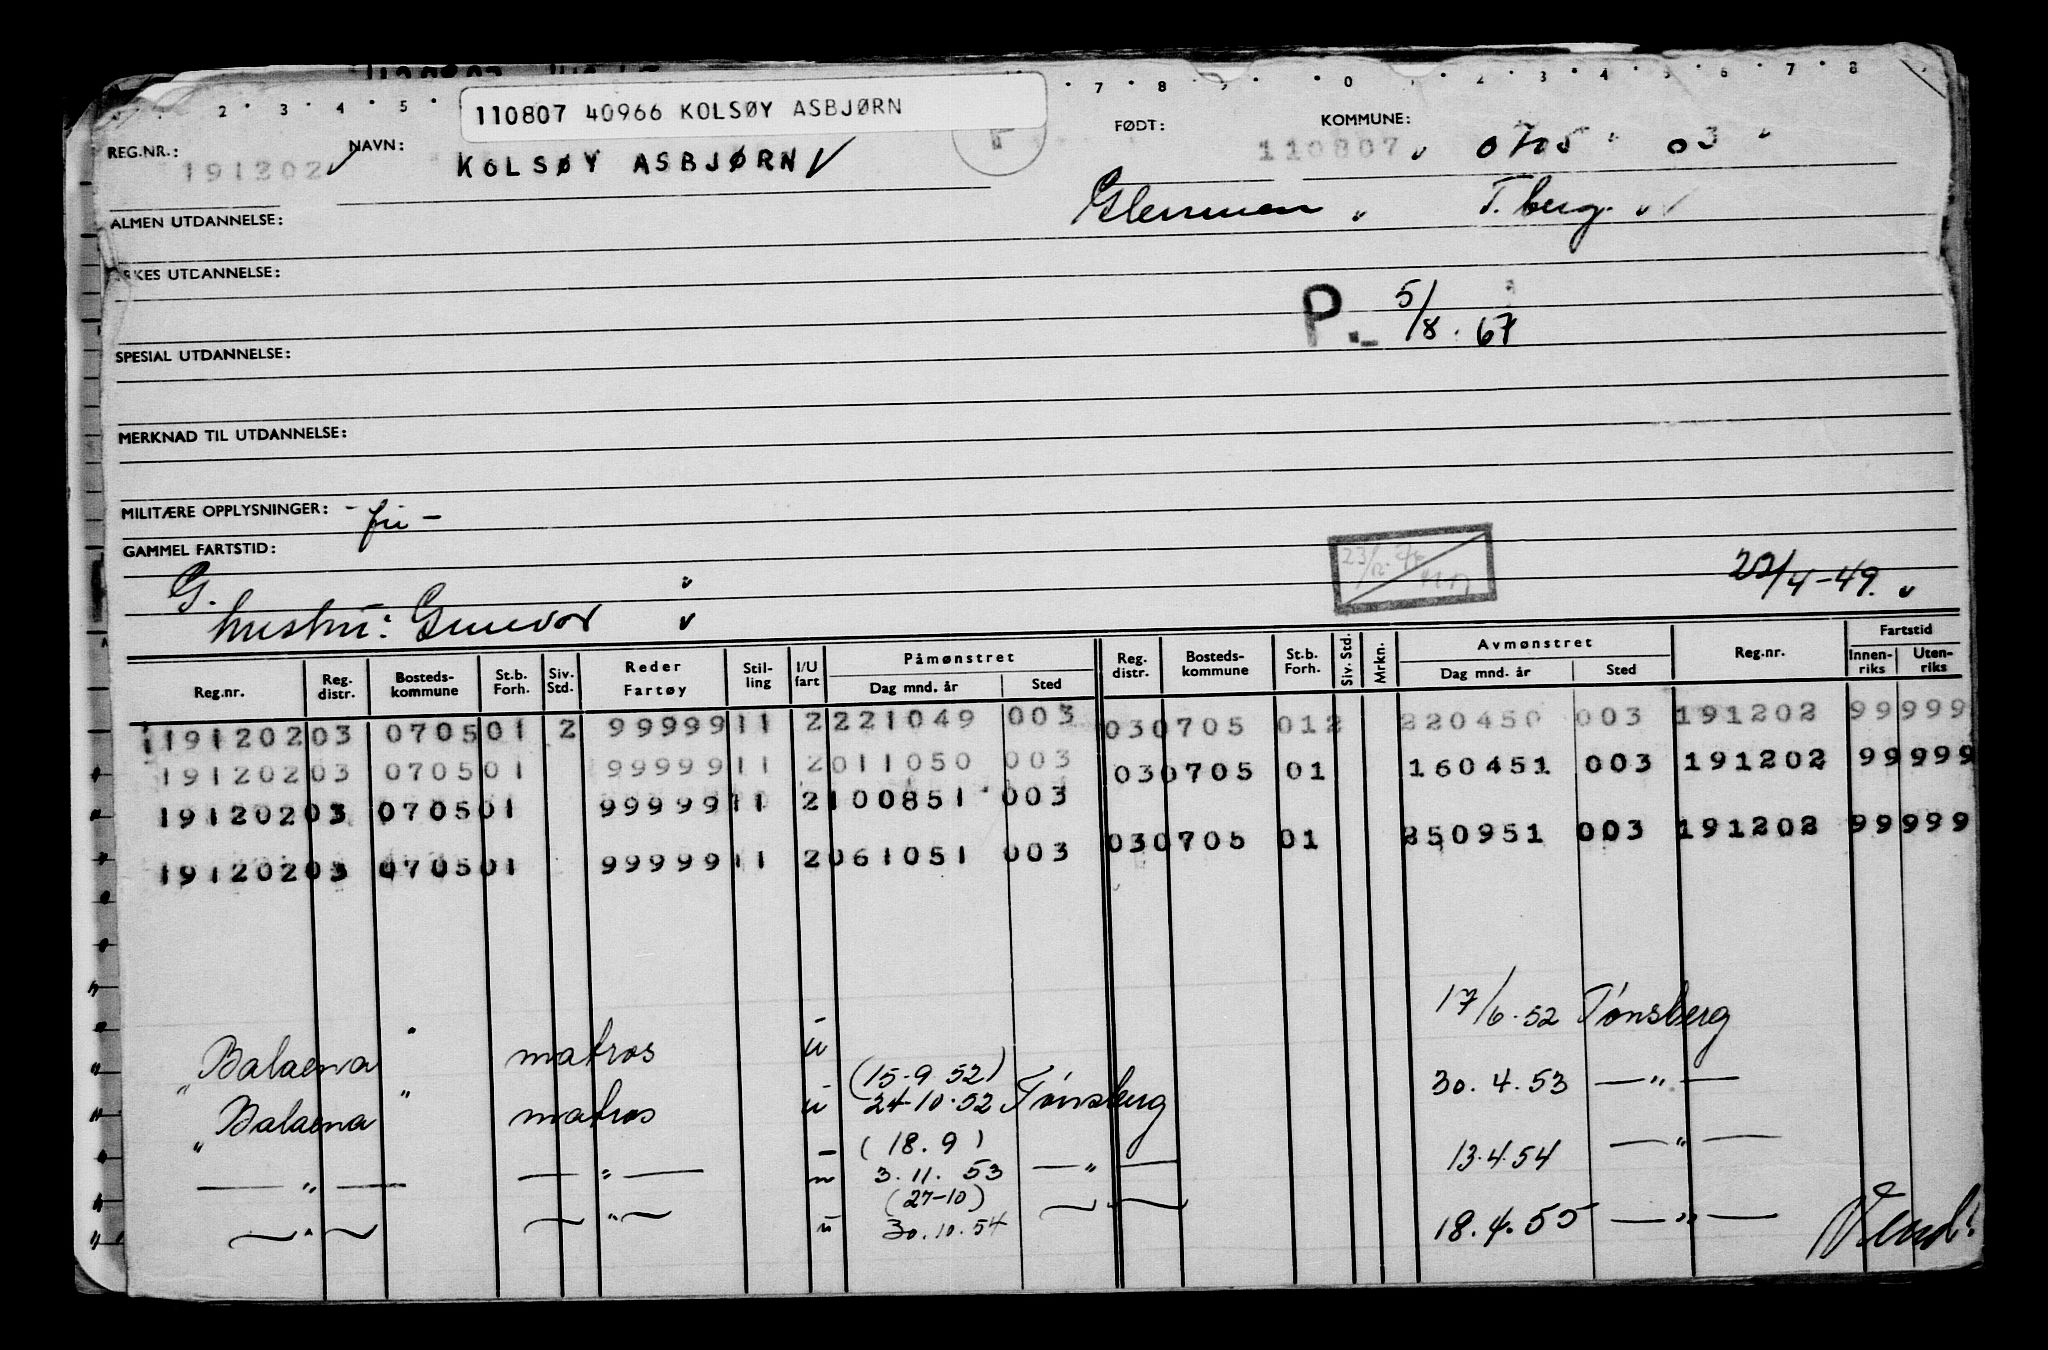 2 3 4 5 7 8 9 0 2 3 4 5 6 7 8
110807 40966 KOLSØY ASBJØRN
REG.NR.: 191202 NAVN: KOLSØY ASBJØRN FØDT: 110807 KOMMUNE: 0705 03
ALMEN UTDANNELSE: T.berg.
RKES UTDANNELSE:
P. 5/8.67
SPESIAL UTDANNELSE:
MERKNAD TIL UTDANNELSE:
MILITÆRE OPPLYSNINGER: - fri -
GAMMEL FARTSTID:
G. 22/4-49.
hustru: Gunvor
Reg.nr. Reg. distr. Bosteds-kommune St.b. Forh. Siv. Std. Reder Fartøy Stil-ling I/U fart Påmønstret Dag mnd. år Sted Reg. distr. Bosteds-kommune St.b. Forh. Siv. Std. Mrkn. Avmønstret Dag mnd. år Sted Reg.nr. Fartstid Innen-riks Uten-riks
191202 03 0705 01 2 99999 11 2 221049 003 03 0705 01 2 220450 003 191202 99 999
191202 03 0705 01 99999 11 2 011050 003 03 0705 01 160451 003 191202 99 999
191202 03 0705 01 99999 11 2 100851 003 03 0705 01 250951 003 191202 99 999
191202 03 0705 01 99999 11 2 061051 003
17/6.52 Tønsberg
"Balaena" matros u
(15-9.52)
"Balaena" matros u 24-10.52 Tønsberg 30.4.53 — " —
(18.9)
— " — — " — u 3.11.53 — " — 13.4.54 — " —
(27-10)
— " — — " — u 30.10.54 — " — 18.4.55 — " —
Vend!